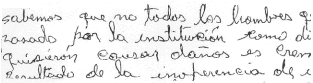 sabemos que no todos los hombres q
zasado por la institución como di
quisieron causar daños es cren
resultado de la insperencia de